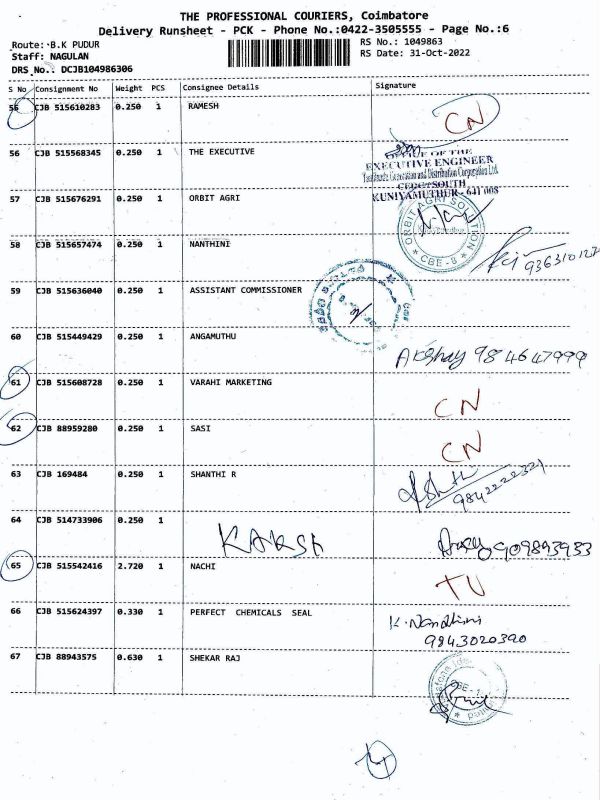 THE PROFESSIONAL COURIERS, Coimbatore
Delivery Runsheet - PCK - Phone No.:0422-3505555 - Page No.:6
Route: B.K PUDUR RS No.: 1049863
Staff: NAGULAN RS Date: 31-Oct-2022
DRS No.: DCJB104986306
S No Consignment No Weight PCS Consignee Details Signature
CJB 515610283 0.250 1 RAMESH CN
56 CJB 515568345 0.250 1 THE EXECUTIVE
OFFICE OF THE
EXECUTIVE ENGINEER
Generation and Distribution Corporation Ltd.
SOUTH
KUNIYAMUTHUR - 641 008
57 CJB 515676291 0.250 1 ORBIT AGRI
ORBIT AGRI SOLUTION
CBE - 8
58 CJB 515657474 0.250 1 NANTHINI
59 CJB 515636040 0.250 1 ASSISTANT COMMISSIONER
60 CJB 515449429 0.250 1 ANGAMUTHU
Akshay 984647999
61 CJB 515608728 0.250 1 VARAHI MARKETING CN
62 CJB 88959280 0.250 1 SASI CN
63 CJB 169484 0.250 1 SHANTHI R
9842222321
64 CJB 514733906 0.250 1
65 CJB 515542416 2.720 1 NACHI
66 CJB 515624397 0.330 1 PERFECT CHEMICALS SEAL
K. Nandhini
9843020390
67 CJB 88943575 0.630 1 SHEKAR RAJ